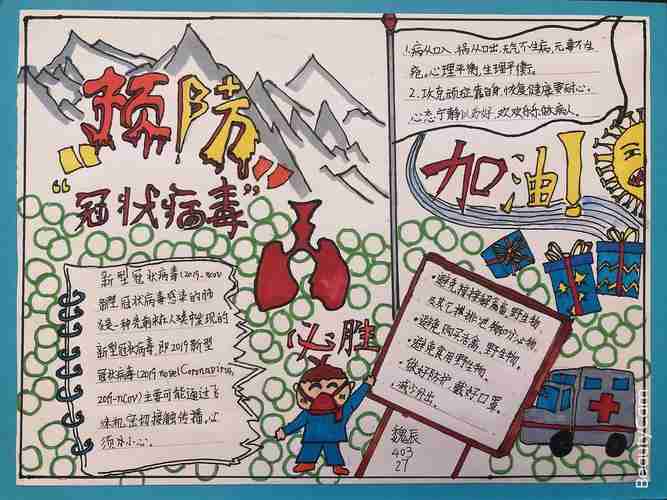 预防
“冠状病毒”
新型冠状病毒(2019-nCoV
新型冠状病毒感染的肺
炎是一种先前未在人类中发现的
新型冠状病毒,即2019新型
冠状病毒(2019 novel Coronavirus,
2019-nCoV)主要可能通过飞
沫和密切接触传播,必
须小心。
必胜
1.病从口入,祸从口出,无气不生病,无毒不生
疮。心理平衡,生理平衡。
2.攻克顽症靠自身,恢复健康要耐心。
心态宁静以为好,欢欢乐乐做病人。
加油!
·避免接触禽畜,野生动物,
及其它排泄物和分泌物。
·避免购买禽畜,野生动物。
·避免食用野生动物。
·做好防护,戴好口罩。
·减少外出。
魏辰
403
27